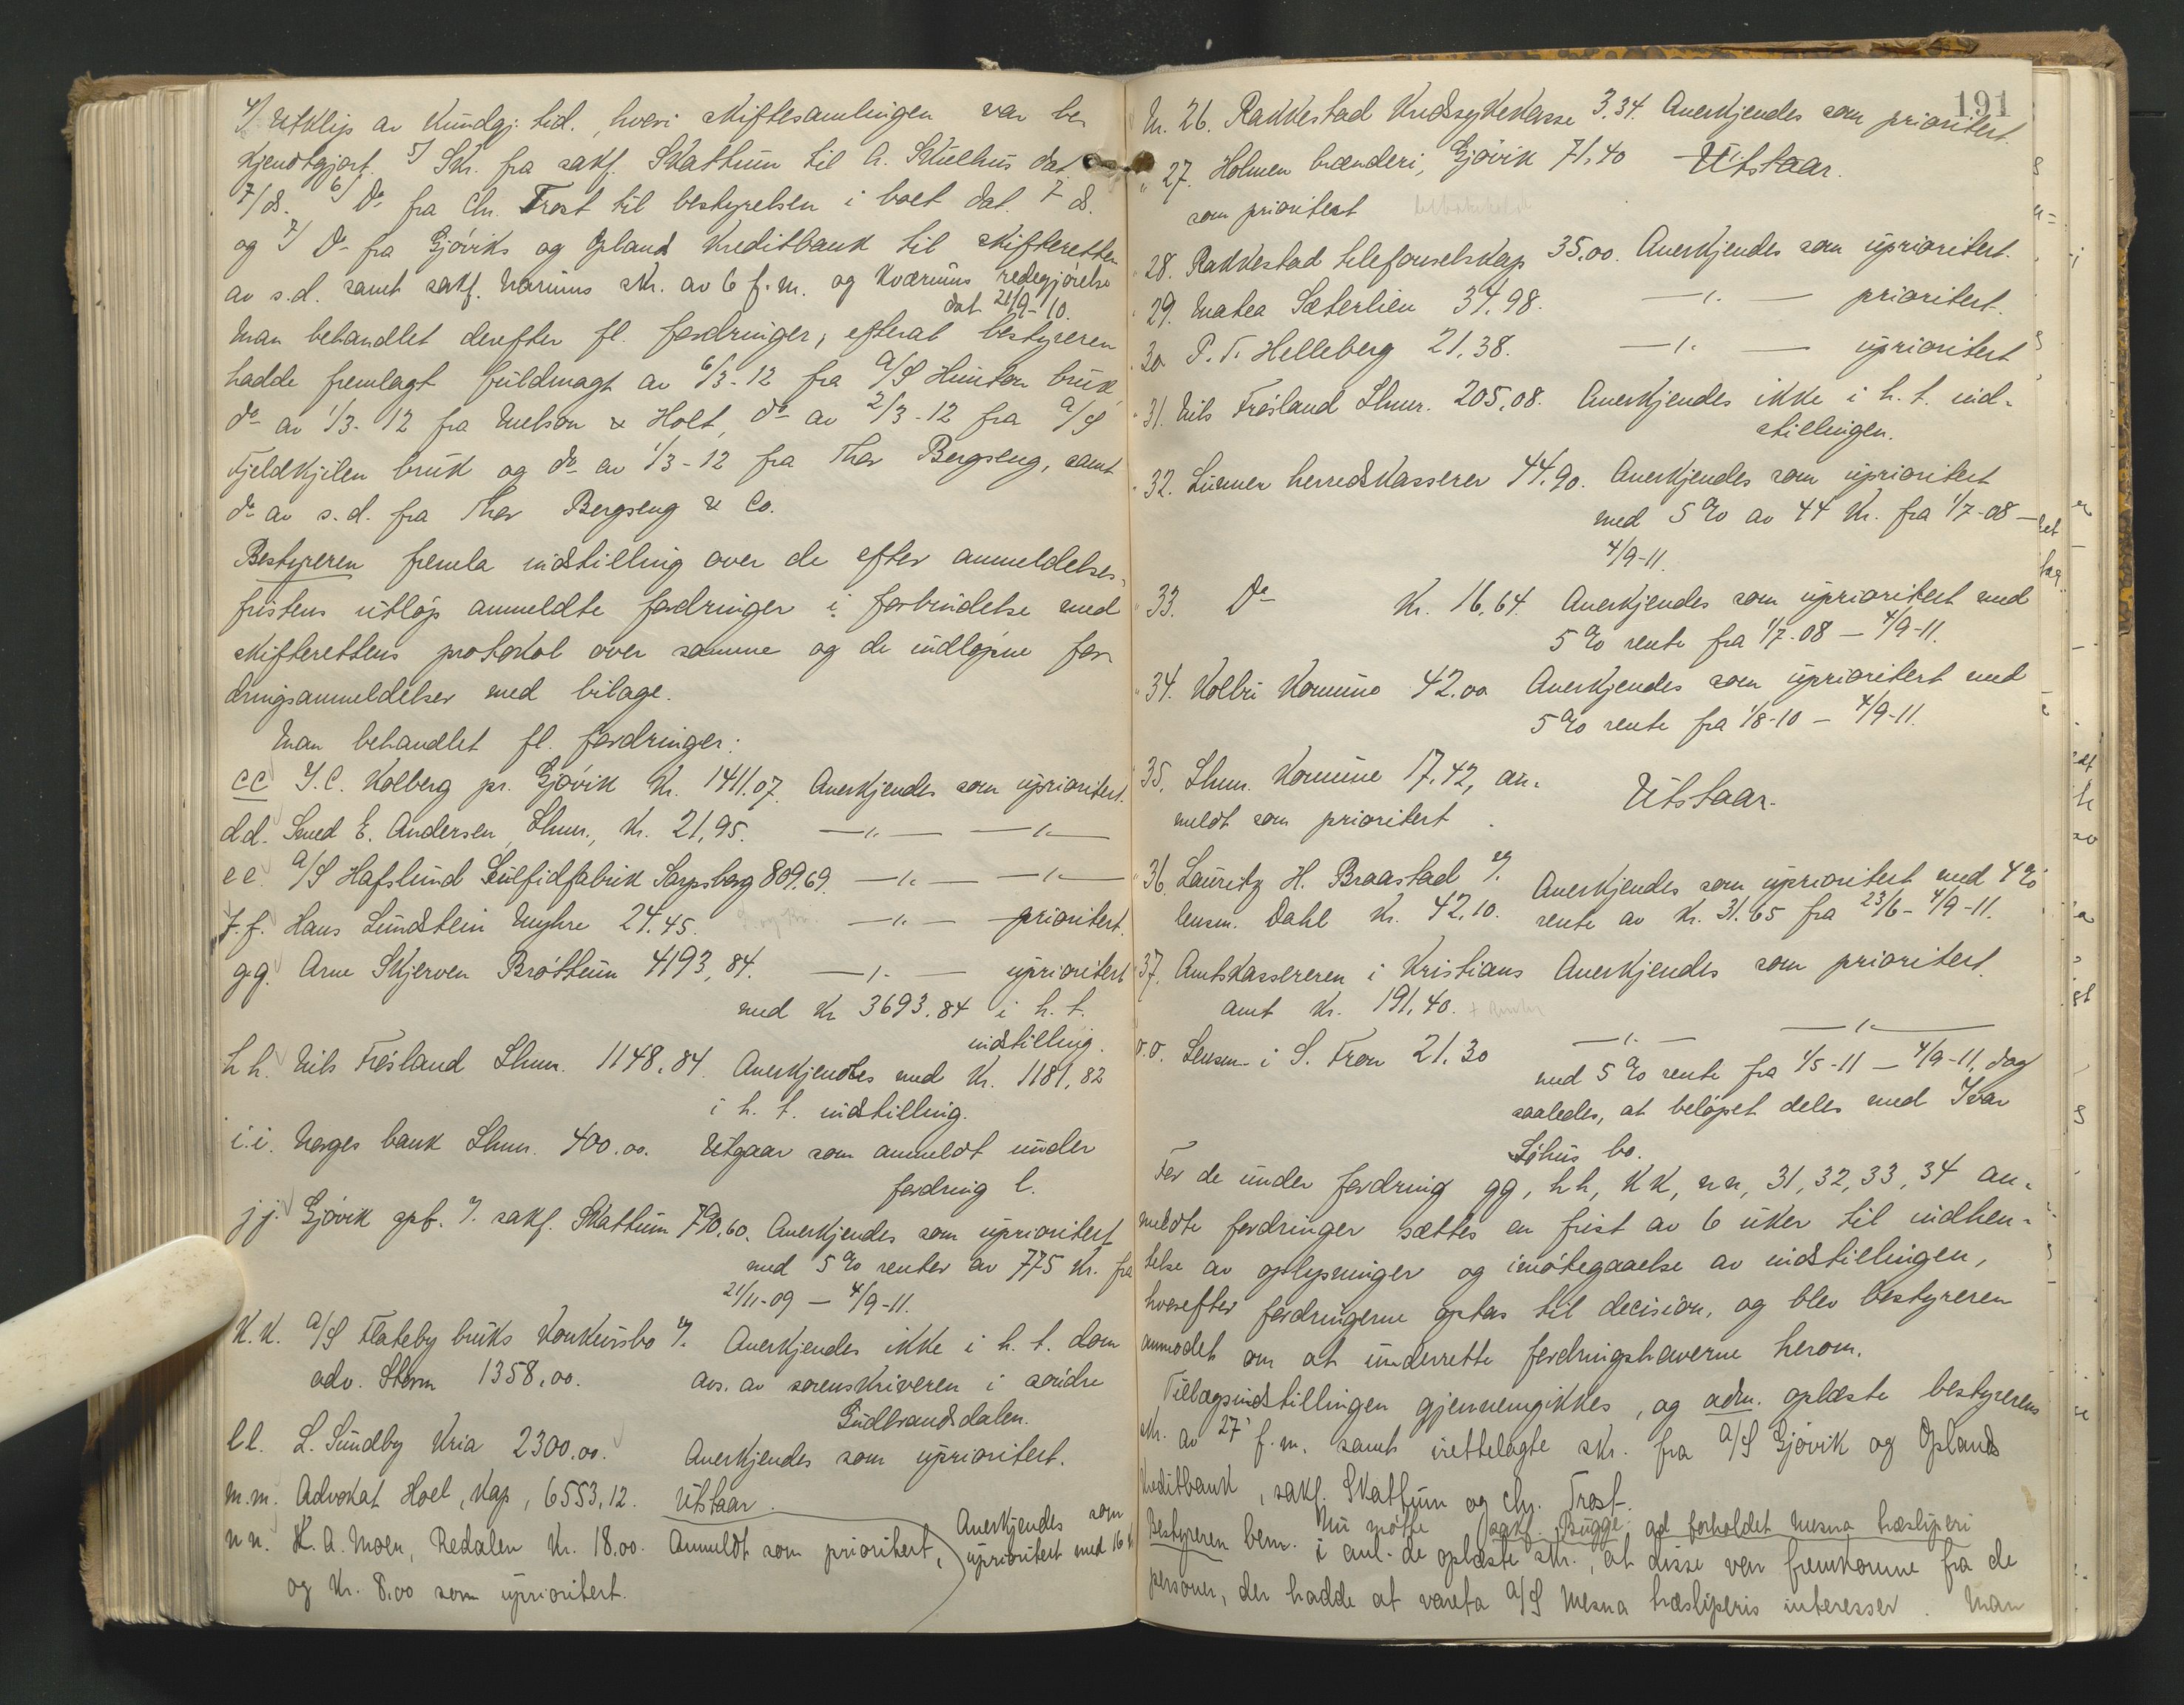 4/ Utklip av Kundgj. tid., hvori skiftesamlingen var be-
kjendtgjort. 5/ Skr. fra sakf. Skattum til A. Skulhus dat.
7/ds. 6/ Do fra Chr. Trost til bestyrelsen i boet dat. 7 ds.
og 7/ Do fra Gjøviks og Opland Kreditbank til skifteretten
av s.d. samt sakf. Narums skr. av 6 f.m. og Kværnums redegjørelse
dat 21/9-10.
Man behandlet derefter fl. fordringer, efterat bestyreren
hadde fremlagt fuldmagt av 6/3-12 fra A/S Hunton bruk,
do av 1/3-12 fra Nielson & Holt, do av 2/3-12 fra A/S
Fjeldkjilen bruk og do av 1/3-12 fra Thor Bergseng, samt
do av s.d. fra Thor Bergseng & Co.
Bestyreren fremla indstilling over de efter anmeldelses-
fristens utløp anmeldte fordringer i forbindelse med
skifterettens protokol over samme og de indløpne for-
dringsanmeldelser med bilage.
Man behandlet fl. fordringer:
cc J. C. Kolberg pr. Gjøvik Kr. 1411.07. Anerkjendes som uprioritert.
d.d. Smed E. Andersen, Lhmr., Kr. 21,95. —"— —"—
e e. A/S Hafslund Sulfidfabrik Sarpsborg 809.69. —"— —"—
f.f. Hans Lundstein Myhre 24.45. —"— prioritert.
g.g. Arne Skjerven Brøttum 4193,84. —"— uprioritert
med Kr 3693.84 i h. t.
indstilling.
h h. Nils Frøsland Lhmr. 1148.84. Anerkjendes med Kr. 1181,82
i h. t. indstilling.
i.i. Norges bank Lhmr. 400.00. Utgaar som anmeldt under
fordring l.
j j. Gjøvik spb. v. sakf. Skattum 790.60. Anerkjendes som uprioritert
med 5 % renter av 775 Kr. fra
21/11-09 — 4/9-11.
K.K. A/S Flateby bruks Konkursbo v. Anerkjendes ikke i h. t. dom
adv. Storm 1358.00. avs. av sorenskriveren i søndre
Gudbrandsdalen.
l l. L. Sundby Kria 2300.00. Anerkjendes som uprioritert.
m.m. Advokat Hoel, Kap, 6553,12. Utstaar.
n n. K. A. Moen, Redalen Kr. 18.00. Anmeldt som prioritert, Anerkjendes som
uprioritert med 16 Kr
og Kr. 8.00 som uprioritert.
191
Nr. 26. Rakkestad Kredssykekasse 3.34. Anerkjendes som prioritert.
" 27. Holmen brænderi, Gjøvik 71.40 Utstaar.
som prioritert
" 28. Rakkestad telefonselskap 35.00. Anerkjendes som uprioritert.
" 29. Matea Sæterlien 34.98. —"— prioritert.
" 30 P. T. Helleberg 21.38. —"— uprioritert
" 31. Nils Frøsland Lhmr. 205.08. Anerkjendes ikke i h. t. ind-
stillingen.
" 32. Lunner herredskasserer 44.90. Anerkjendes som uprioritert
med 5 % av 44 Kr. fra 1/7-08 —
4/9-11.
" 33. Do Kr. 16.64. Anerkjendes som uprioritert med
5 % rente fra 1/7-08 — 4/9-11.
" 34. Kolbu Kommune 42.00 Anerkjendes som uprioritert med
5 % rente fra 1/8-10 — 4/9-11.
" 35. Lhmr. Kommune 17.42, an- Utstaar.
meldt som prioritert.
" 36. Lauritz H. Braastad v. Anerkjendes som uprioritert med 4 %
lensm. Dahl Kr. 42.10. rente av Kr. 31.65 fra 23/6 - 4/9-11.
37. Amtskassereren i Kristians Anerkjendes som prioritert.
amt Kr. 191.40.
o.o. Lensm. i S. Fron 21.30 —"— —"—
med 5 % rente fra 1/5-11 — 4/9-11, dog
saaledes, at beløpet deles med Ivar
Løhus bo.
For de under fordring gg, hh, KK, nn, 31, 32, 33, 34 an-
meldte fordringer sættes en frist av 6 uker til indhen-
telse av oplysninger og imøtegaaelse av indstillingen,
hvorefter fordringerne optas til decision, og blev bestyreren
anmodet om at underrette fordringshaverne herom.
Tillægsindstillingen gjennemgikkes, og adm. oplæste bestyrerens
skr. av 27' f.m. samt irettelagte skr. fra A/S Gjøvik og Oplands
Kreditbank, sakf. Skattum og Chr. Trost.
Nu møtte sakf. Bugge. ad forholdet Mesna træsliperi
Bestyreren bem. i anl. de oplæste skr., at disse var fremkomne fra de
personer, der hadde at vareta A/S Mesna træsliperis interesser. Man